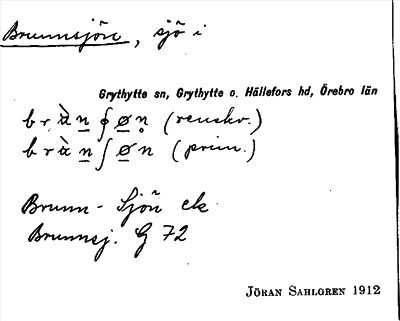 Brunnsjön, sjö i
Grythytte sn, Grythytte o. Hällefors hd, Örebro län
(renskr.)
(prim.)
Brunn- Sjön ek
Brunnsj. G 72
JÖRAN SAHLGREN 1912